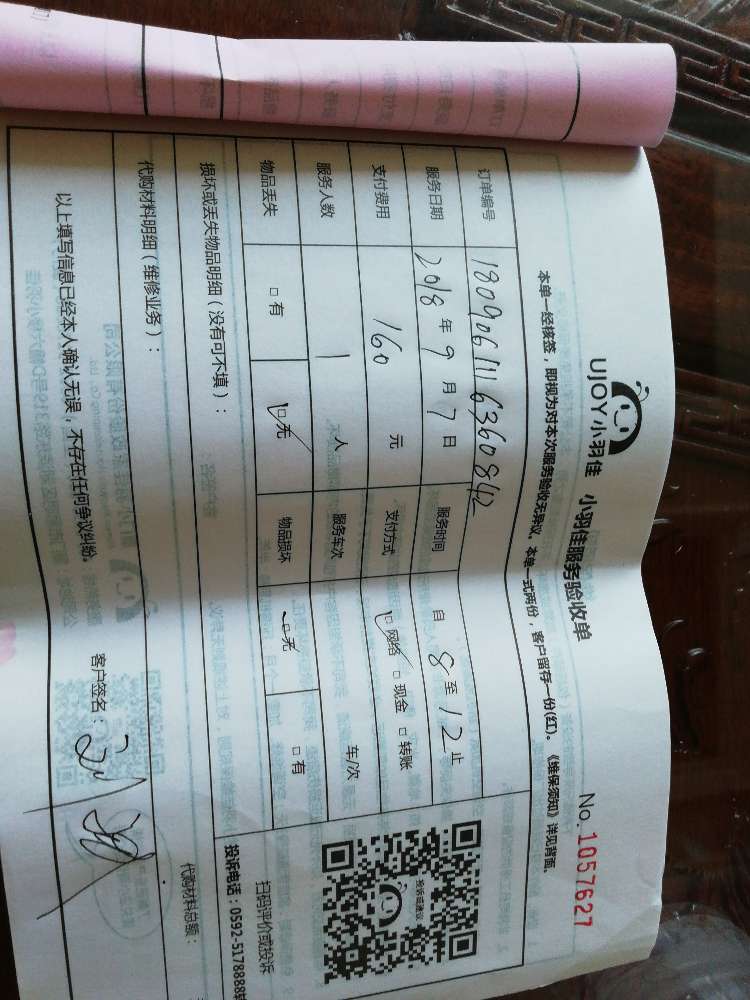 UJOY小羽佳 小羽佳服务验收单 No.1057627
本单一经核签，即视为对本次服务验收无异议。本单一式两份，客户留存一份(红)。《维保须知》详见背面。
订单编号 1809061116360842
服务日期 2018年9月7日 服务时间 自8至12止
支付费用 160元 支付方式 网络 现金 转账
服务人数 1人 服务车次 车/次
物品丢失 有 无 物品损坏 无 有
损坏或丢失物品明细（没有可不填）：
代购材料明细（维修业务）： 代购材料总额：
投诉或建议
扫码评价或投诉
投诉电话：0592-5178888转
以上填写信息已经本人确认无误，不存在任何争议纠纷。 客户签名：